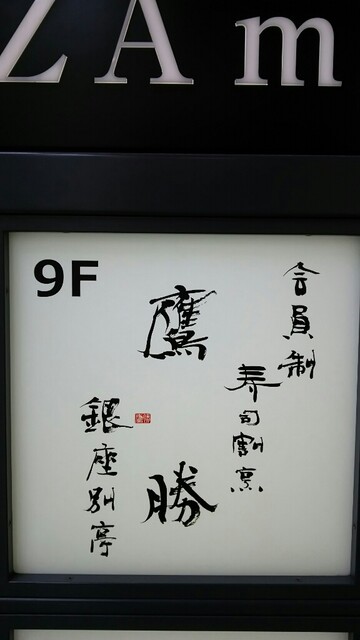 ZA m
9F
会員制
寿司割烹
鷹勝
銀座別亭